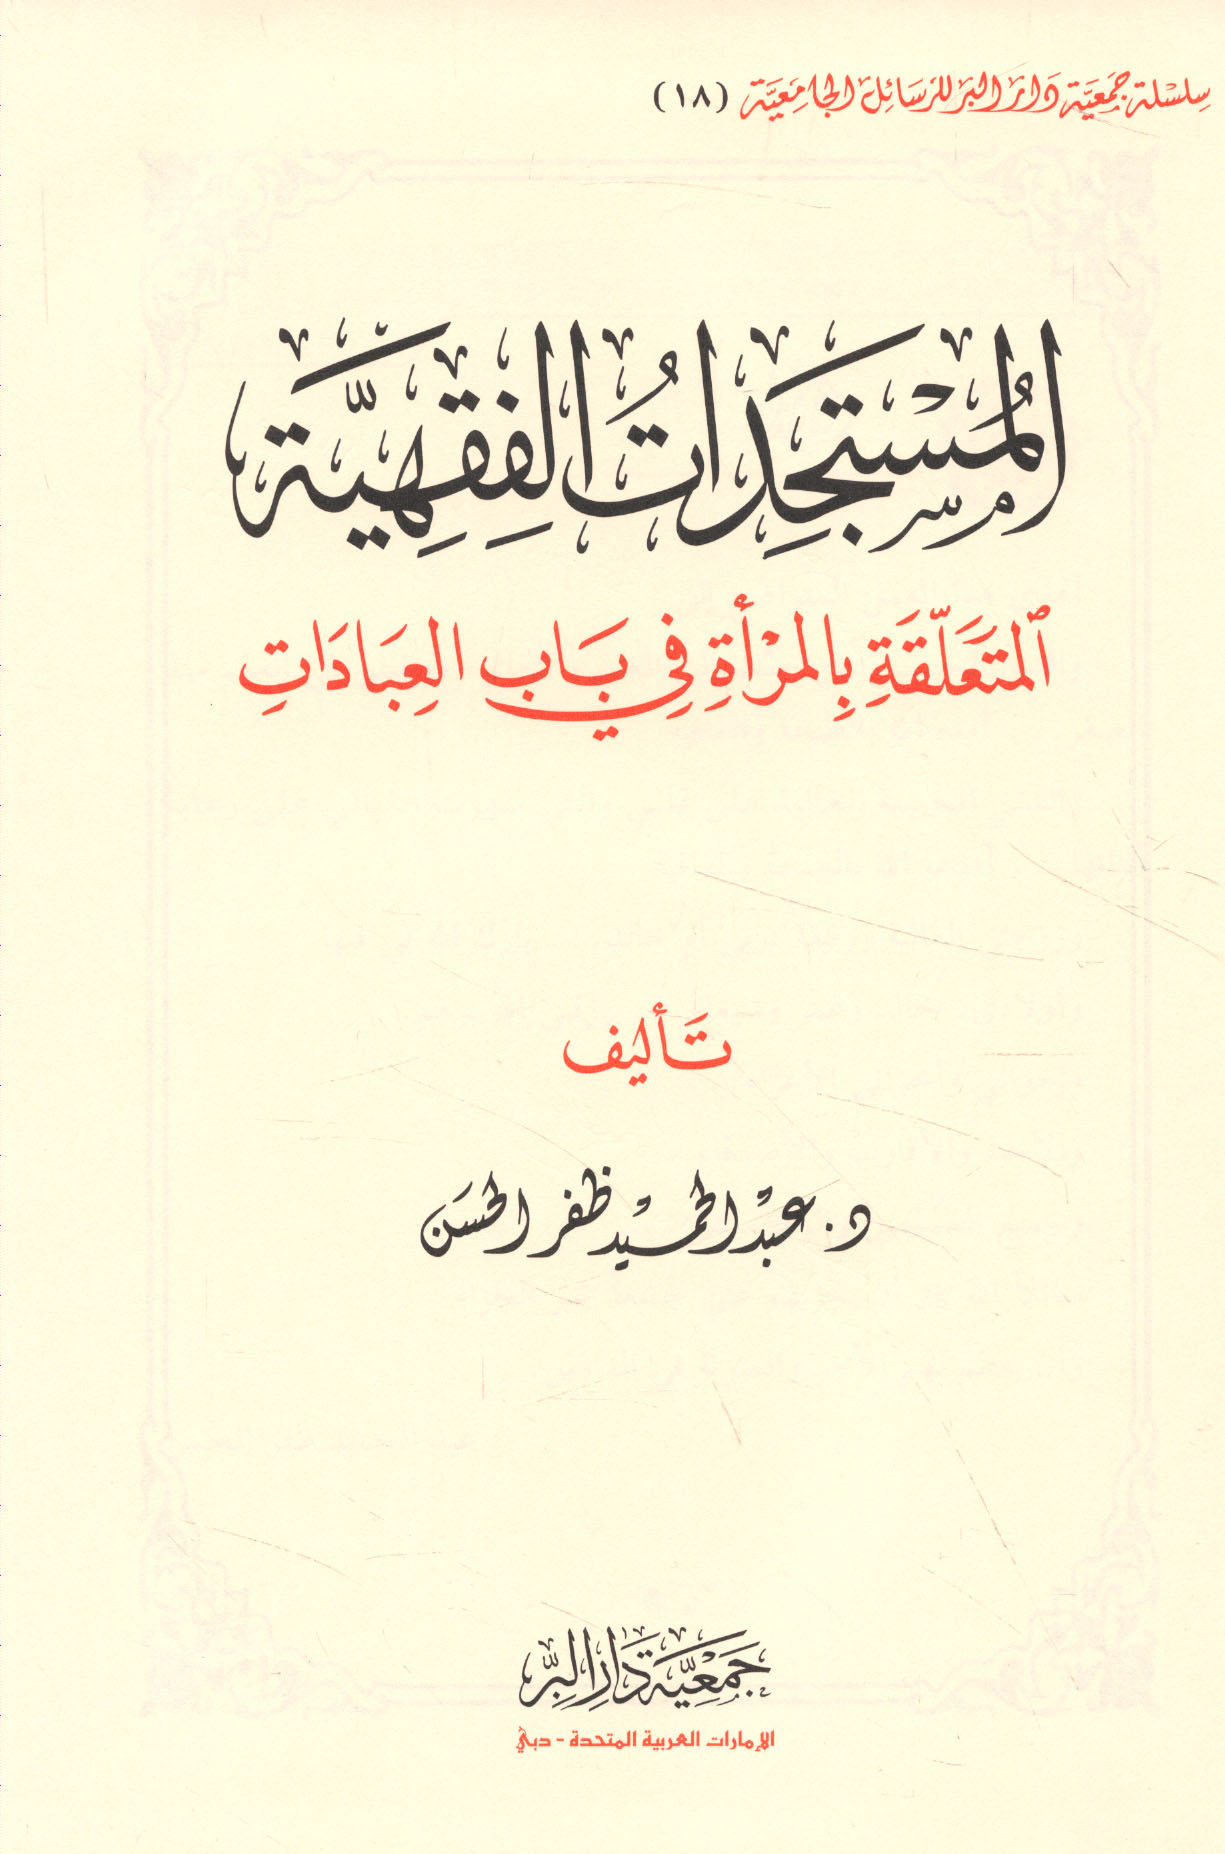 سلسلة جمعيّة دار البر للرسائل الجامعيّة (١٨)
المُسْتَجِدَاتُ الفِقهِيَّة
المتَعَلّقَةِ بِالمرْأَةِ فِي بَابِ العِبَادَاتِ
تَأليف
د. عبد الحميد ظفر الحسَن
جَمْعِيَّة دَار البِرّ
الإمارات العربية المتحدة - دبي